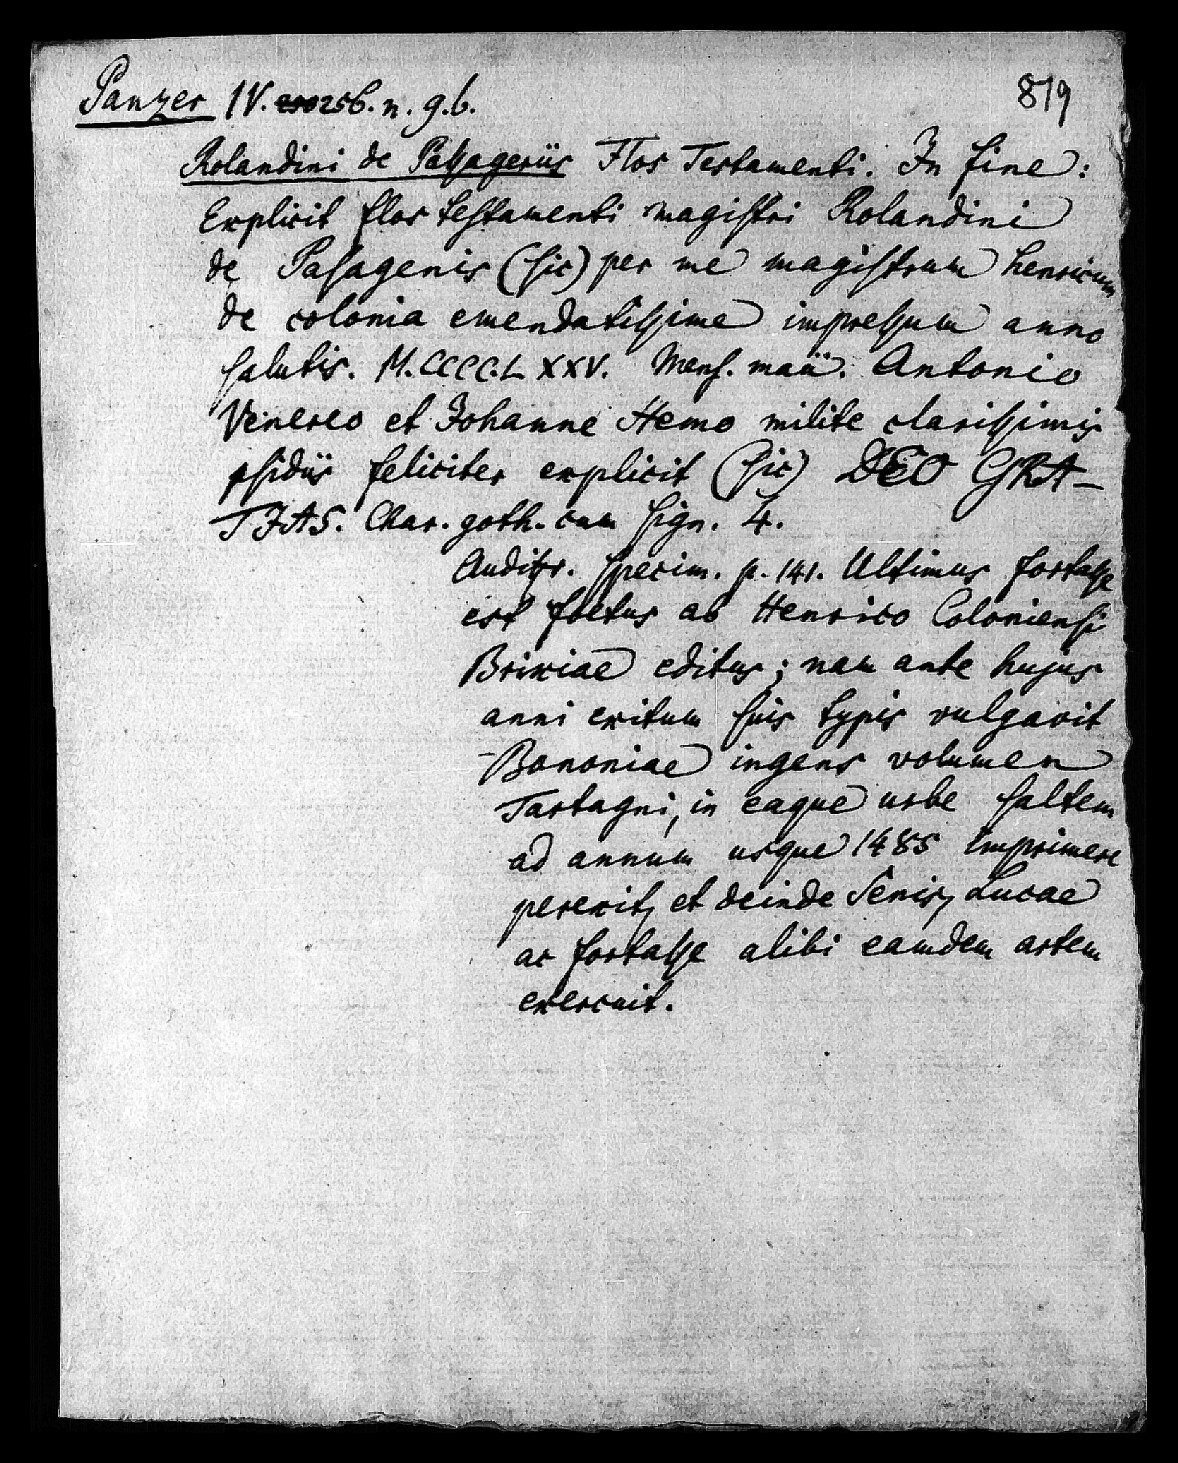 819
Panzer IV. 256. n. 9.b.
Rolandini de Passageriis Flos Testamenti. In fine:
Explicit flos testamenti magistri Rolandini
de Pasagenis (sic) per me magistrum henricum
de colonia emendatissime impressum anno
salutis. M.CCCC.LXXV. Mens. maii. Antonio
Venereo et Johanne Hemo milite clarissimis
psidiis feliciter explicit (sic) DEO GRA-
TIAS. Char. goth. cum sign. 4.
Auditfr. specim. p. 141. Ultimus fortasse
est foetus ab Henrico Coloniensi
Brixiae editus; nam ante hujus
anni exitum suis typis vulgavit
Bononiae ingens volumen
Tartagni, in eaque urbe saltem
ad annum usque 1485 imprimere
perrexit, et deinde Senis, Lucae
ac fortasse alibi eamdem artem
exercuit.